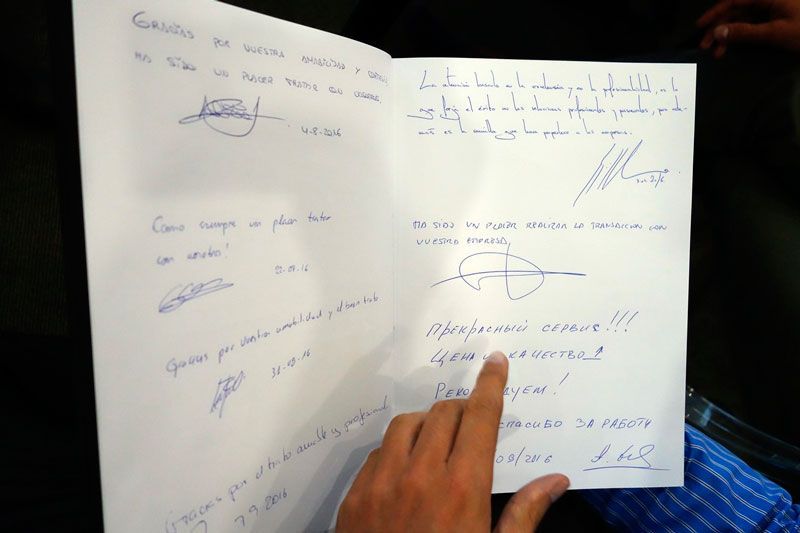 GRACIAS POR VUESTRA AMABILIDAD Y
HA SIDO UN PLACER TRATAR CON VOSOTROS.
4-8-2016
Como siempre un placer tratar
con vosotros!
22-07-16
Gracias por vuestra amabilidad y el buen trato
31-08-16
Gracias por el trato amable y profesional
7 9 2016
La atención basada en la excelencia y en la profesionalidad, es lo
que forja el éxito en las relaciones profesionales y personales, por
es la semilla que hace a las empresas.
HA SIDO UN PLACER REALIZAR LA TRANSACCION CON
VUESTRA EMPRESA
ПРЕКРАСНЫЙ СЕРВИС!!!
ЦЕНА И КАЧЕСТВО
!
СПАСИБО ЗА РАБОТУ
09/2016